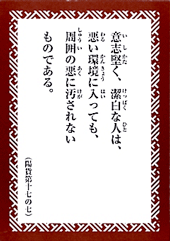 意志堅く、潔白な人は、
悪い環境に入っても、
周囲の悪に汚されない
ものである。
(陽貨第十七の七)